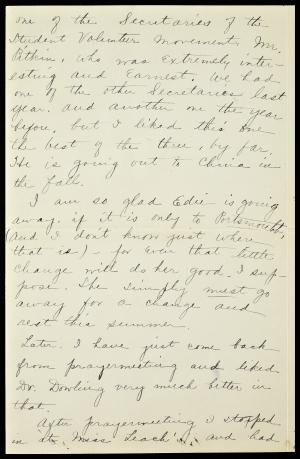 one of the Secretaries of the
Student Volunteer Movement, Mr.
Pitkin, who was extremely inter-
esting and Earnest. We had
one of the other Secretaries last
year, and another one the year
before, but I liked this one
the best of the three, by far.
He is going out to China in
the fall.
I am so glad Edie is going
away, if it is only to Portsmouth,
(and I don't know just where
that is) - for even that little
change will do her good I sup-
pose. She simply must go
away for a change and
rest this summer.
Later. I have just come back
from prayermeeting and liked
Dr. Dowling very much better in
that.
After prayermeeting I stopped
in at Miss Leach's, and had